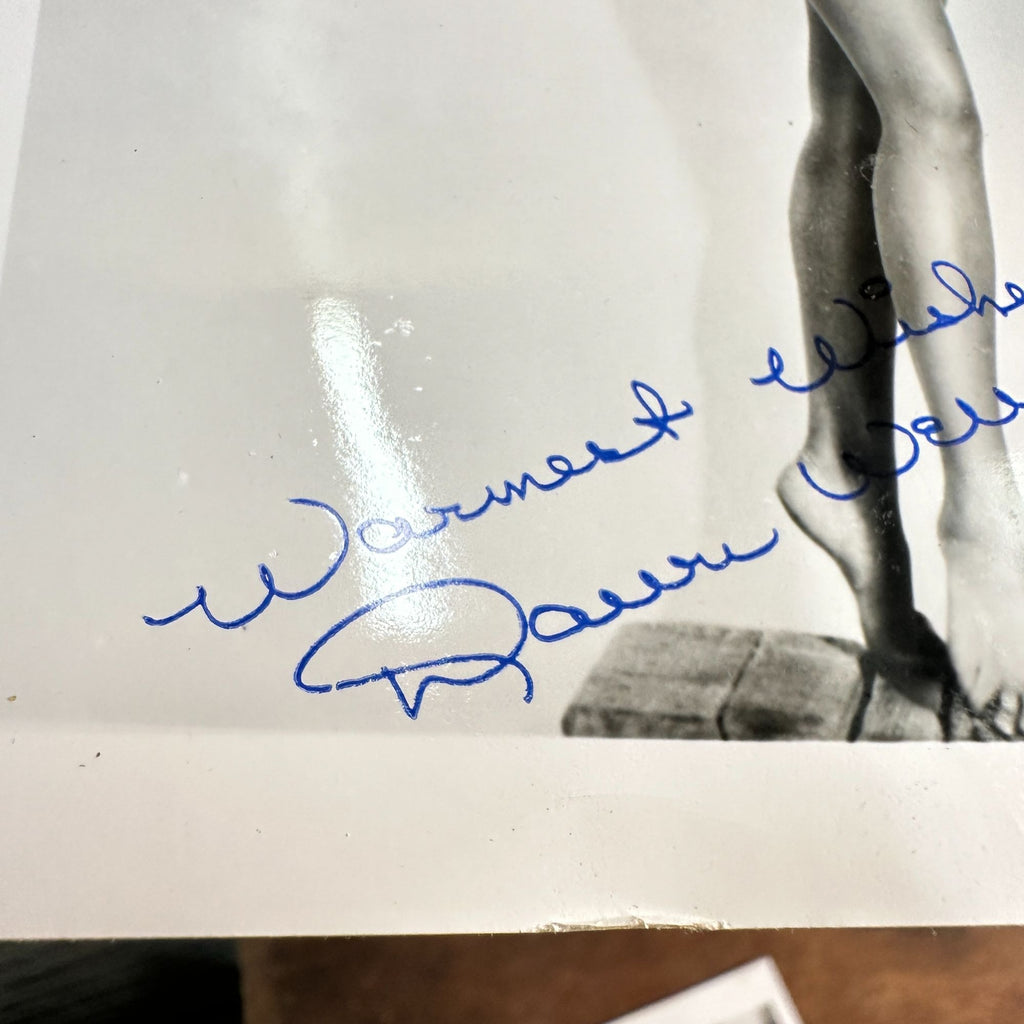 Warmest Wishe
Dawn Well